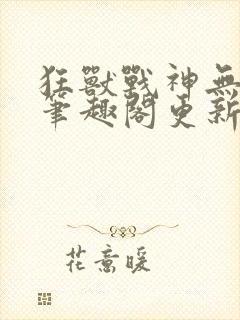 狂獸戰神無
筆趣閣更新
花意暖